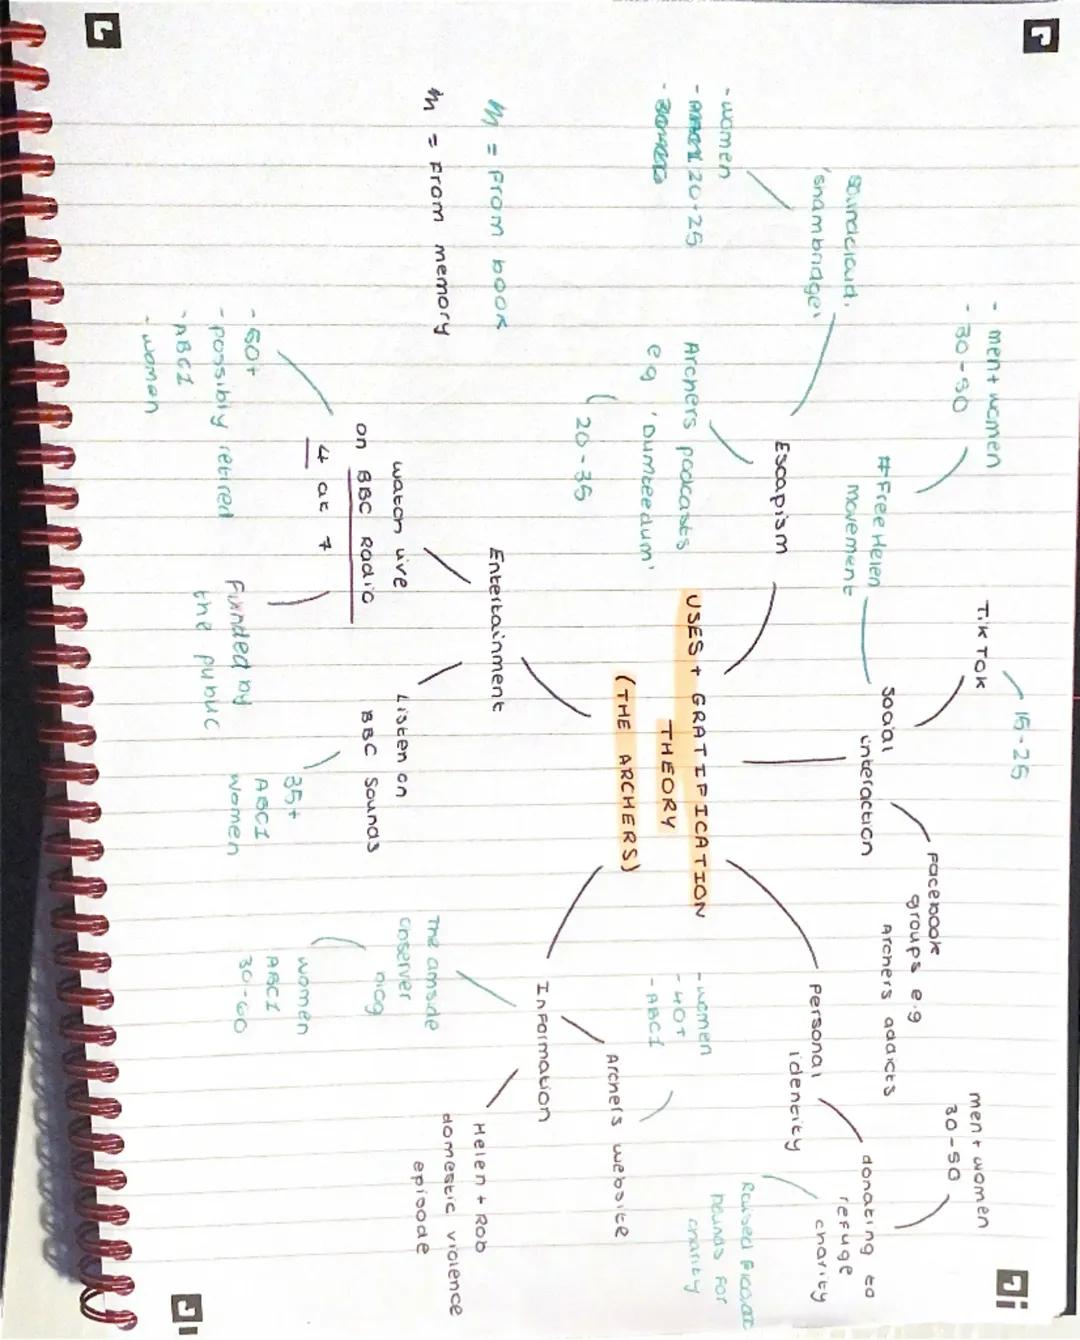 TikTok
15-25
- men + women
- 30-50
#FreeHelen
movement
Social
interaction
Facebook
groups e.g
Archers addicts
men + women
30-50
donating to
refuge
charity
Personal
identity
Raised
pounds for
charity
Soundcloud,
'Shambridge'
- women
20-25
Escapism
Archers podcasts
e.g 'Dumteedum'
20-35
USES + GRATIFICATION
THEORY
(THE ARCHERS)
- women
- 40+
- ABC1
Archers website
Information
Helen + Rob
domestic violence
episode
The amside
observer
blog
women
ABC1
30-60
Entertainment
watch live
on BBC Radio
4 at 7
- 60+
- possibly retired
- ABC1
- women
Funded by
the public
Listen on
BBC Sounds
35+
ABC1
women
M = from book
M = from memory